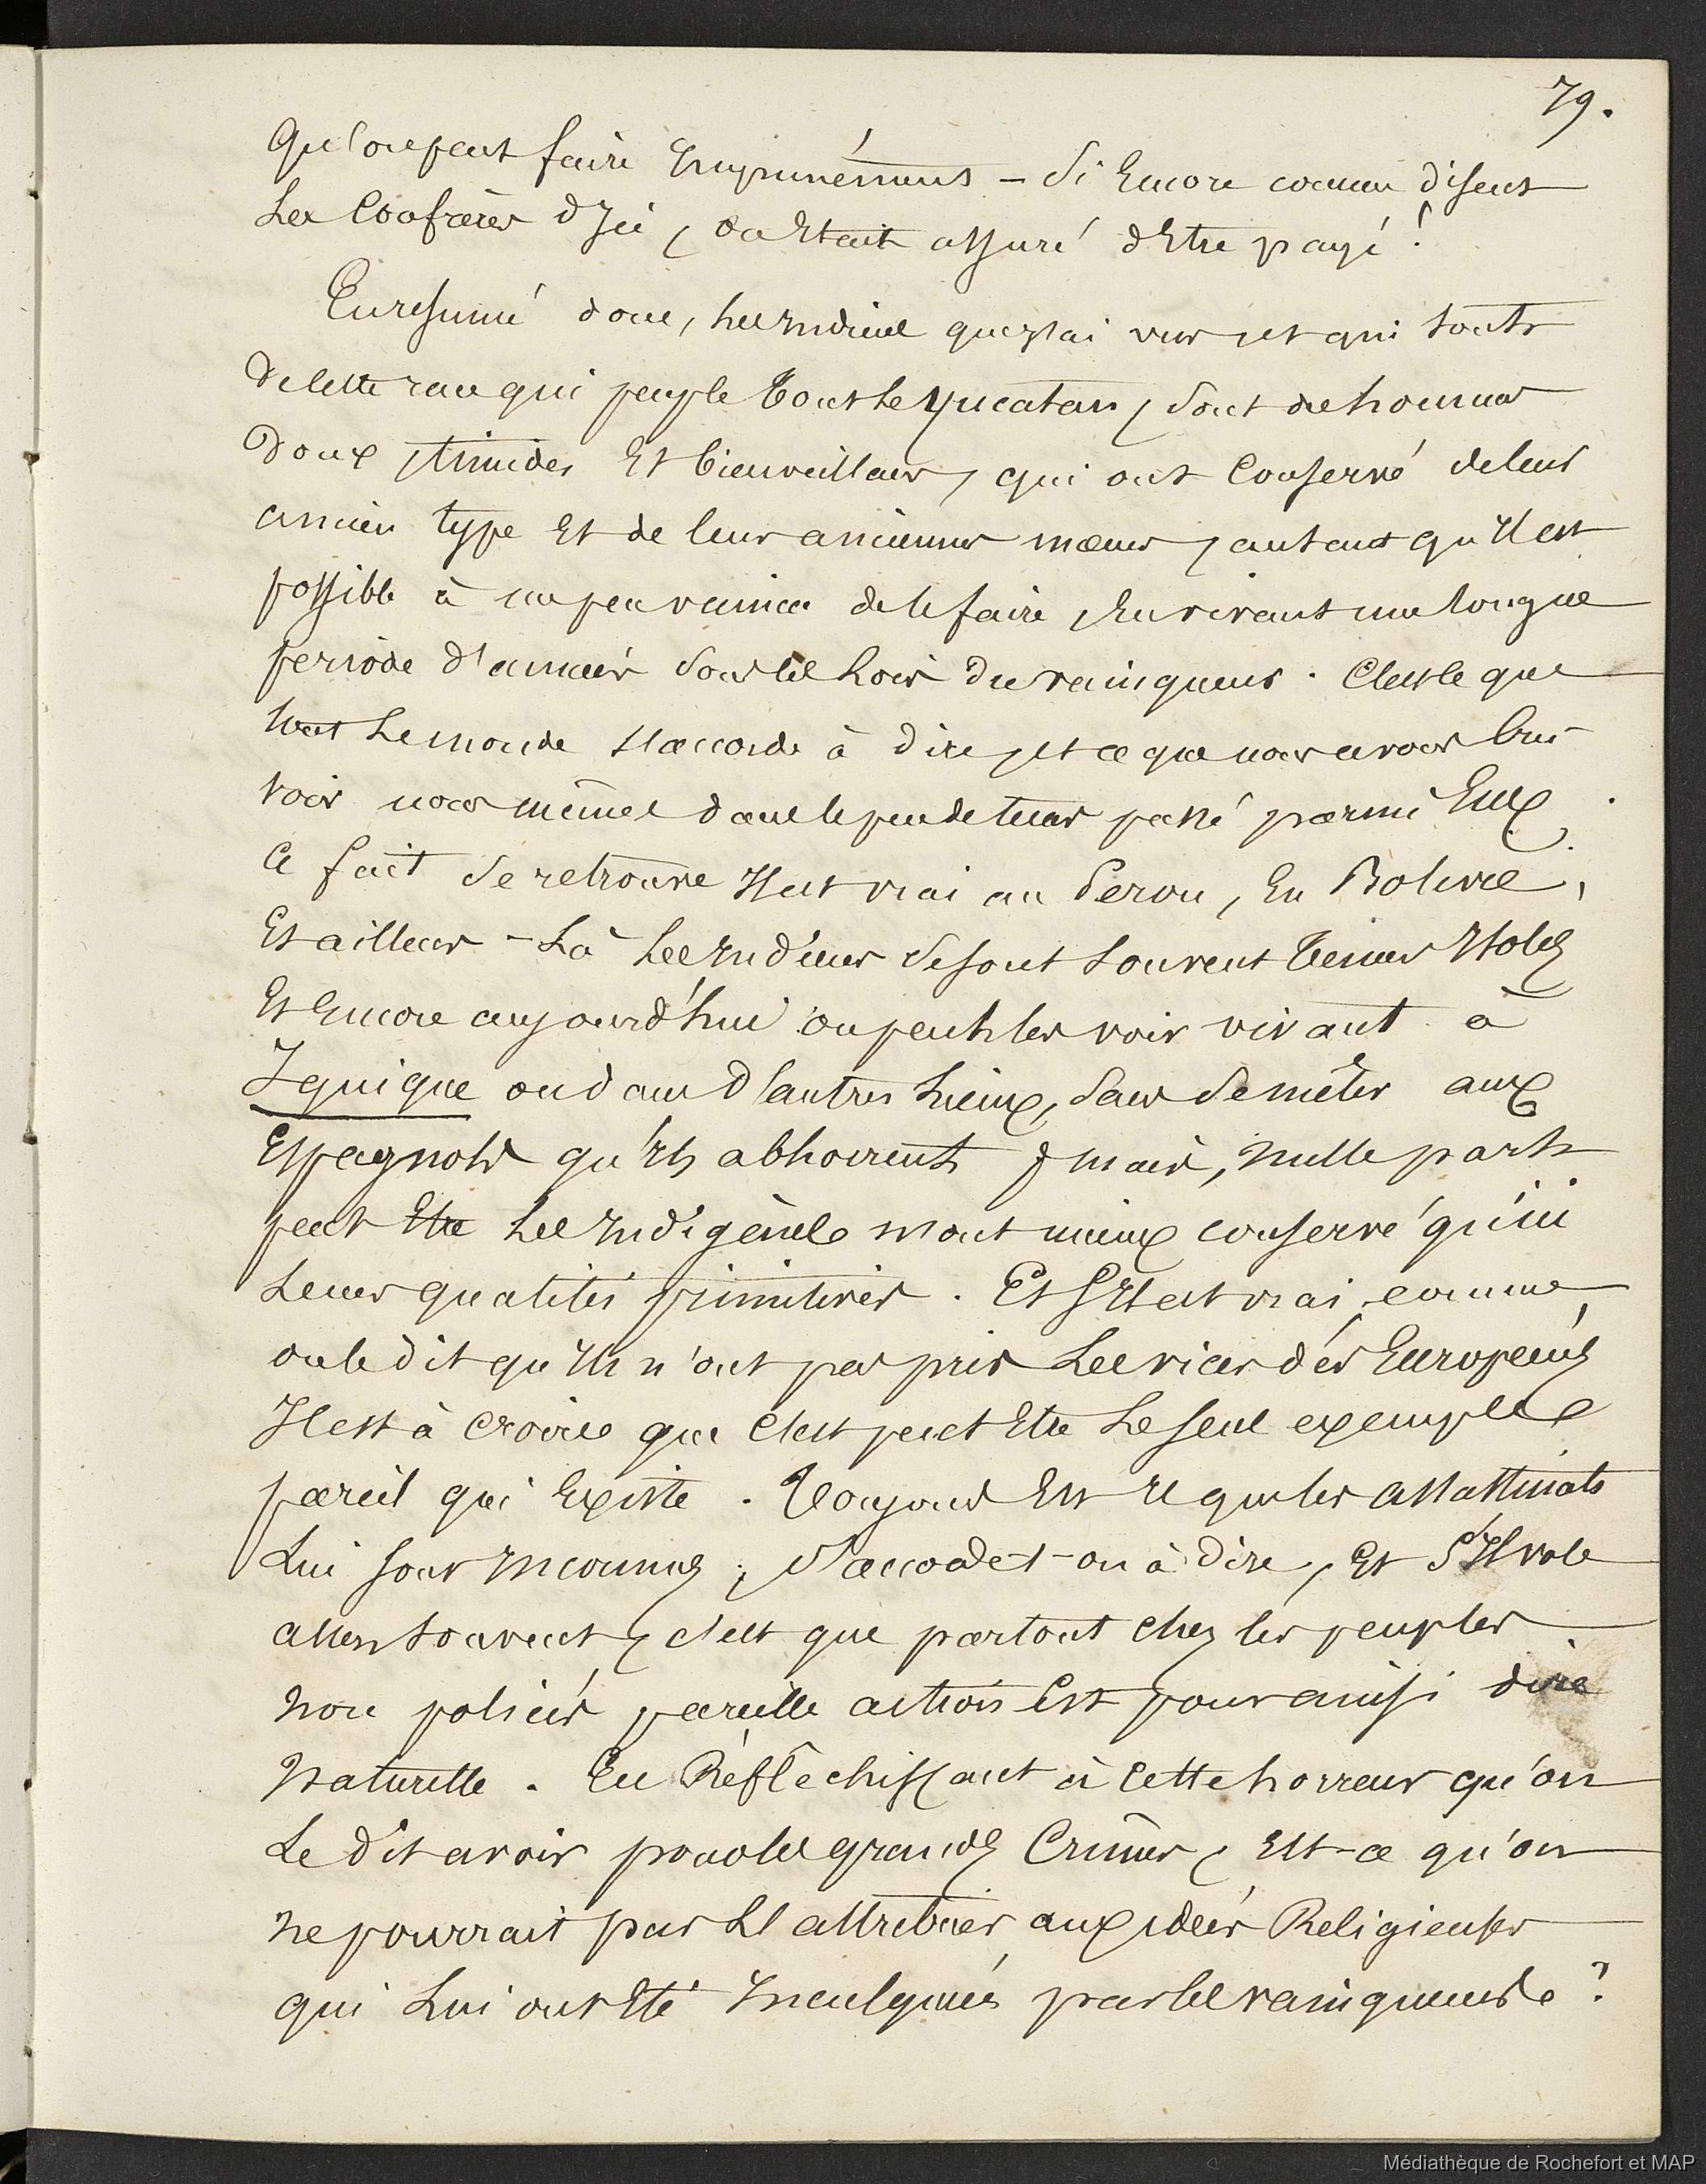 79.
Qu'on peut faire impunément – Si Encore comme disent
Les Confrères d'Ici, on Etait assuré d'Etre payé !
En resumé donc, Les Indiens que j'ai vus, et qui sont
de cette race qui peuple tout le Yucatan, sont des hommes
doux, timides Et bienveillans, qui ont Conservé de leur
ancien type Et de leurs anciennes mœurs, autant qu'Il est
possible à un peu vaincu de le faire, En vivant une longue
periode d'années sous les Lois du vainqueur. C'est ce que
tout Le monde s'accorde à dire, et ce que nous avons Cru
voir nous mêmes dans le peu de tems passé parmi Eux.
Ce fait se retrouve Il est vrai au Perou, En Bolivie,
Et ailleurs – Là Les Indiens se sont souvent tenus Isolés
Et Encore aujourd'hui on peut les voir vivant à
Iquique ou dans d'autres Lieux, sans se mêler aux
Espagnols qu'Ils abhorrent ; mais, nulle part
peut Etre Les Indigènes n'ont mieux conservé qu'ici
Leurs qualités primitives. Et S'Il est vrai, comme
on le dit qu'Ils n'ont pas pris Les vices des Européens
Il est à croire que C'est peut Etre Le seul exemple
pareil qui Existe. Toujours Est Il que les assassinats
Lui sont Inconnus, S'accorde-t-on à dire, Et S'Il vole
assez souvent, c'est que partout chez les peuples
non policés pareille action Est pour ainsi dire
Naturelle. En Réfléchissant à cette horreur qu'on
Le dit avoir pour les grands Crimes, Est-ce qu'on
ne pourrait pas L'attribuer aux idées Religieuses
qui Lui ont Eté Inculquées par les vainqueurs ?
Médiathèque de Rochefort et MAP